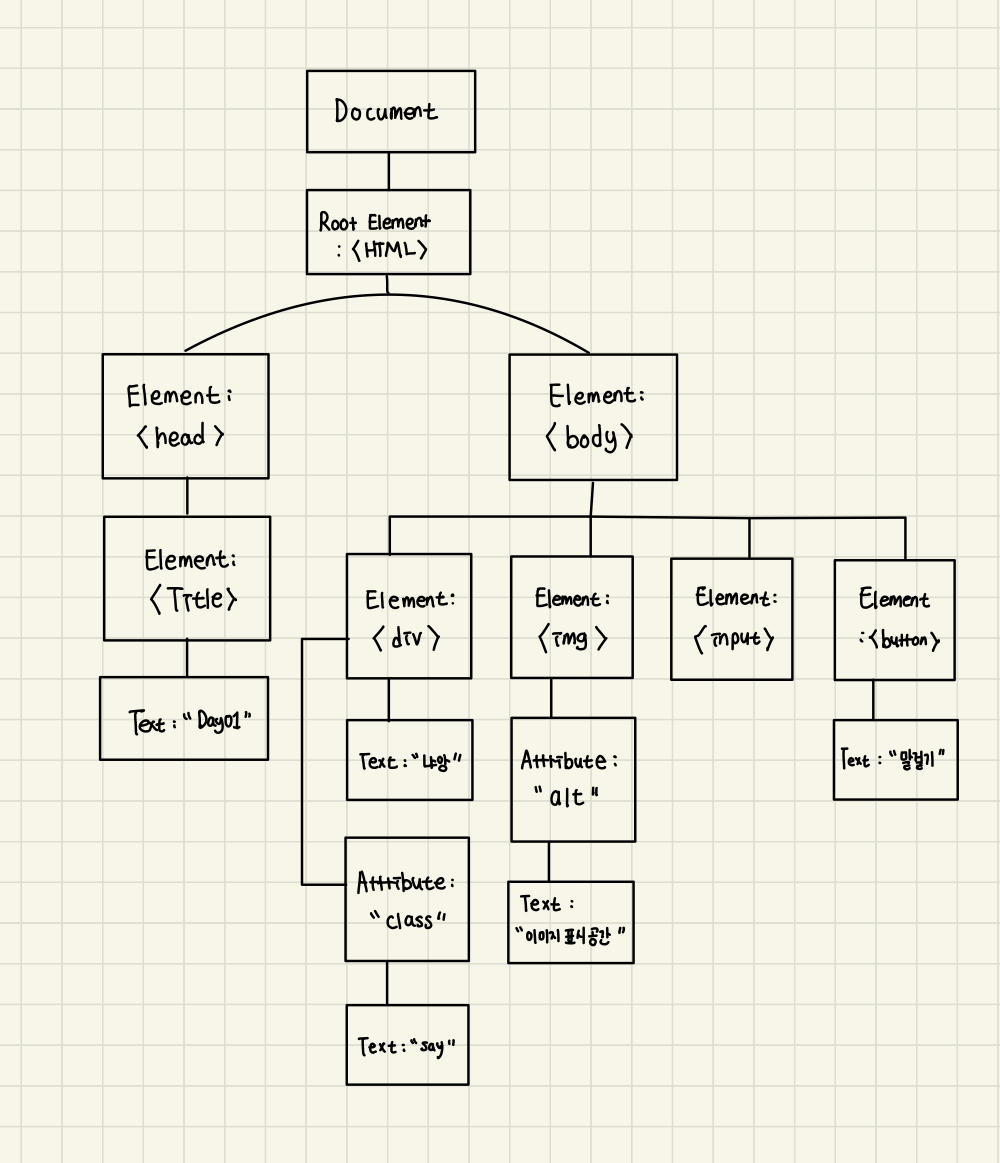 Document
Root Element
: <HTML>
Element:
<head>
Element:
<body>
Element:
<Title>
Element:
<div>
Element:
<img>
Element:
<input>
Element
:<button>
Text : "Day01"
Text : "냐앙"
Attribute :
"alt"
Text : "말걸기"
Attribute :
"class"
Text :
"이미지 표시 공간"
Text : "say"